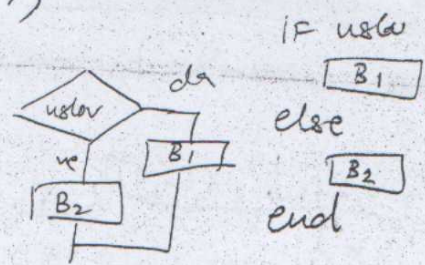 )
uslov
da
ne
B1
B2
if uslov
B1
else
B2
end